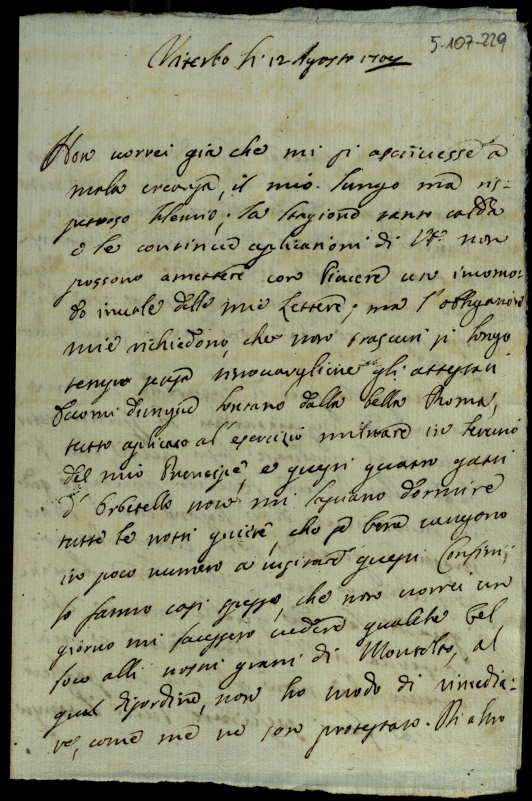 5-107-229
Viterbo li 12 Agosto 1707
Non vorrei già che mi si ascrivesse a
mala creanza, il mio lungo mà ris-
pettoso silentio; la stagione tanto calda
e le continue aplicationi di V.S. non
possono amettere con piacere un incomo-
do inutile delle mie lettere; ma l'obligationi
mie richiedono, che non trascuri più longo
tempo senza rinovargliene gli attestati
Eccomi dunque lontano dalla bella Roma,
tutto aplicato al'esercizio militare in servizio
del mio Prencipe, e questi quattro gatti
d'Orbitello non mi lasciano dormire
tutte le notti quiete, che se bene vengono
in poco numero a visitare questi Confini,
lo fanno così spesso, che non vorrei un
giorno mi facessero vedere qualche bel
foco alli nostri grani di Montalto, al
qual disordine, non ho modo di rimedia-
re, come me ne son protestato. Di altro